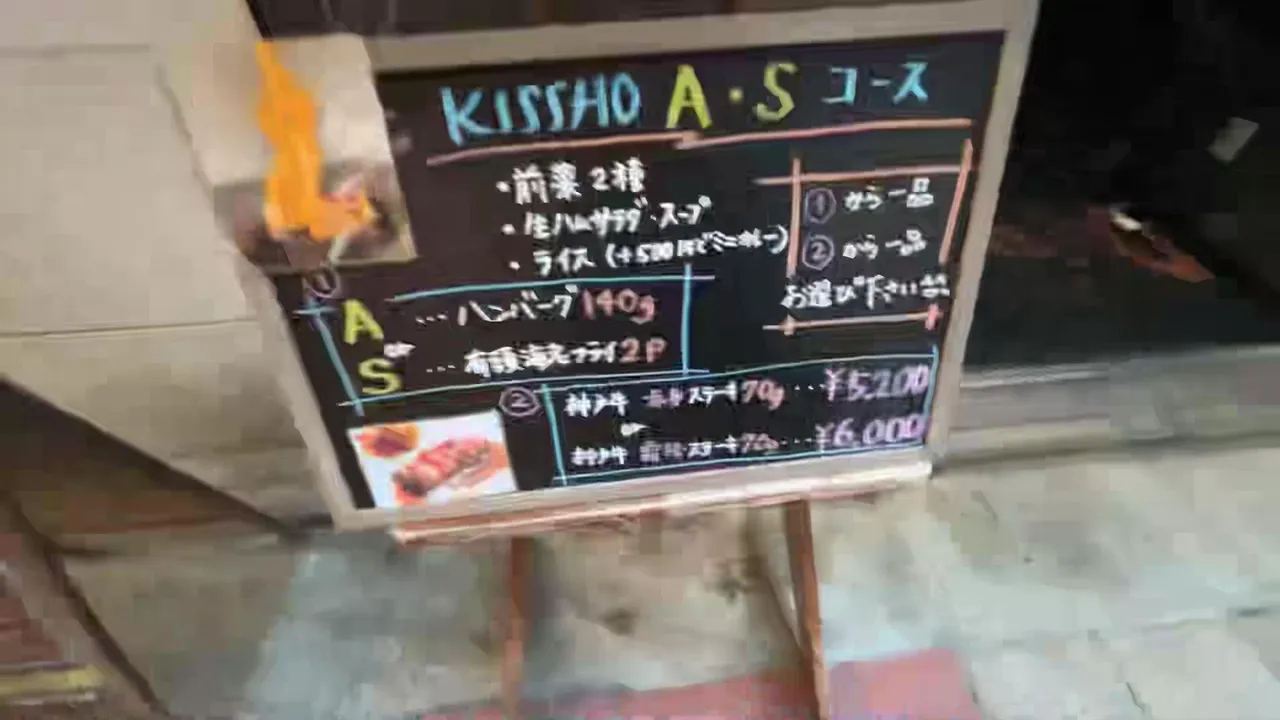 KISSHO A・S コース
・前菜2種
・生ハムサラダ・スープ
・ライス (+500円でミニカレー)
① から一品
② から一品
お選び下さい
①
A … ハンバーグ 140g
or
S … 有頭海老フライ 2P
②
神戸牛 ステーキ 70g … ¥5,200
or
神戸牛 ステーキ 70g … ¥6,000